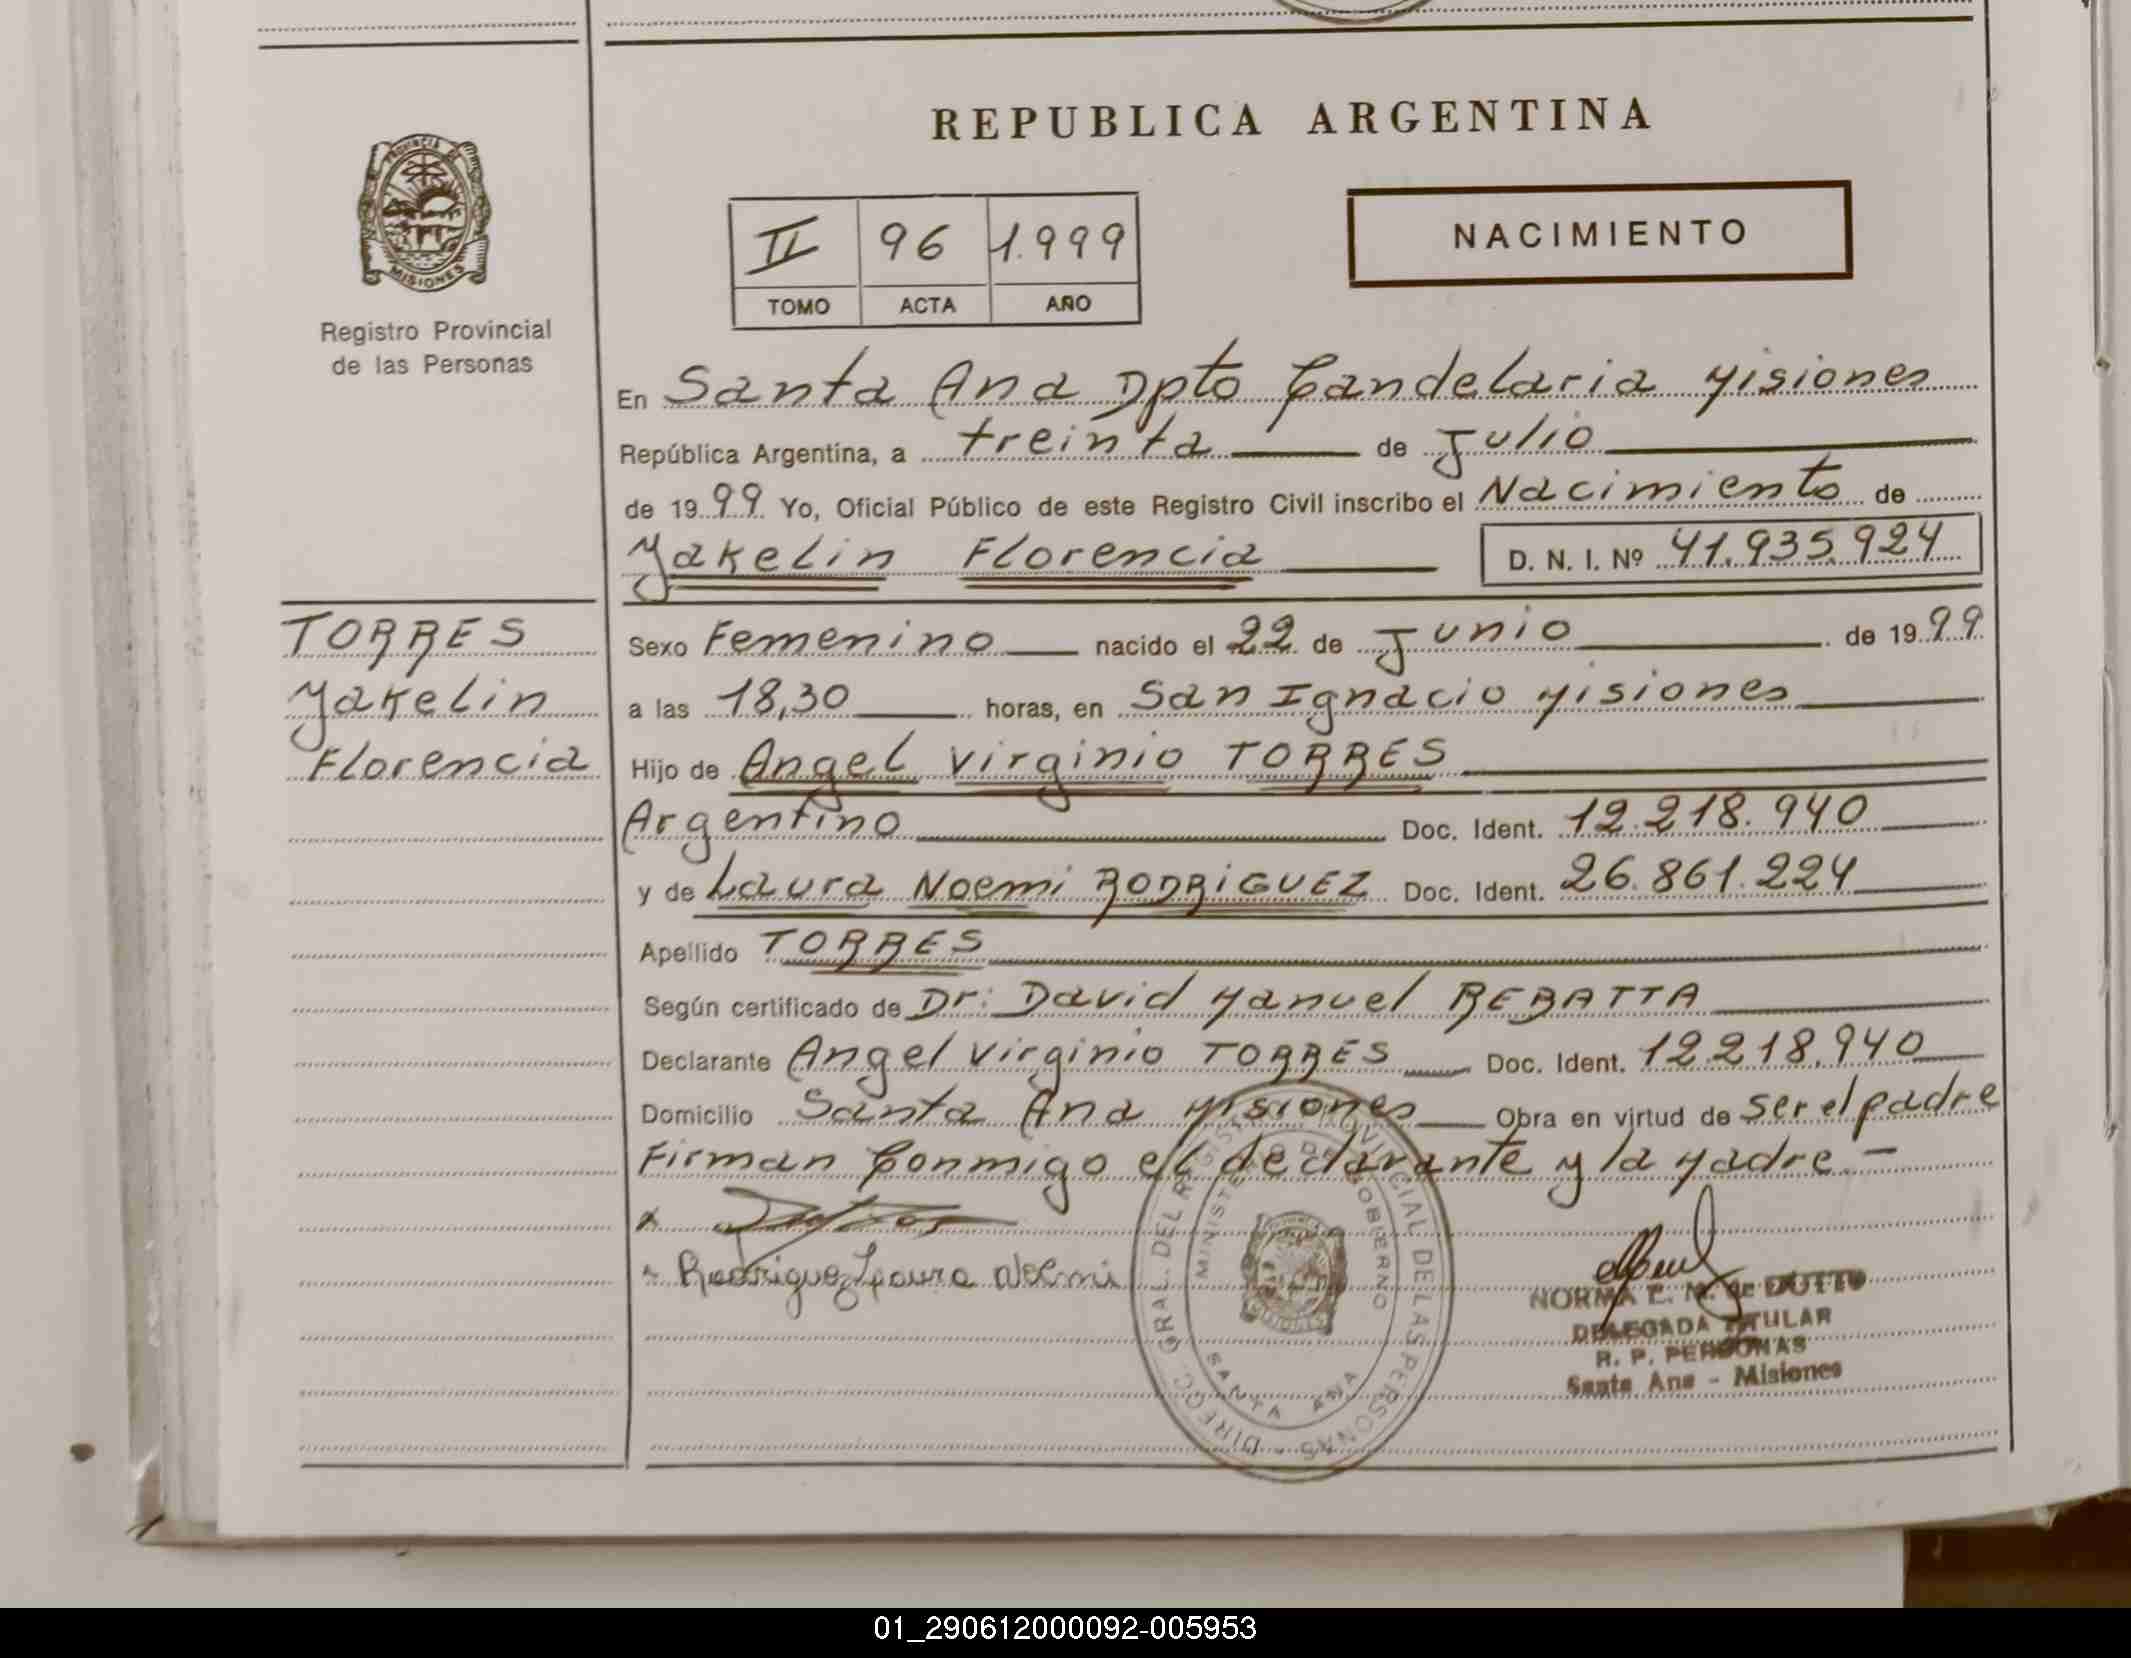 REPUBLICA ARGENTINA
PROVINCIA DE
MISIONES
Registro Provincial
de las Personas
II 96 1.999
TOMO ACTA AÑO
NACIMIENTO
En Santa Ana Dpto Candelaria Misiones
República Argentina, a treinta de Julio
de 1999 Yo, Oficial Público de este Registro Civil inscribo el Nacimiento de
Yakelin Florencia D. N. I. Nº 41.935.924
TORRES
Yakelin
Florencia
Sexo Femenino nacido el 22 de Junio de 1999
a las 18,30 horas, en San Ignacio Misiones
Hijo de Angel Virginio TORRES
Argentino Doc. Ident. 12.218.940
y de Laura Noemi RODRIGUEZ Doc. Ident. 26.861.224
Apellido TORRES
Según certificado de Dr: David Manuel REBATTA
Declarante Angel Virginio TORRES Doc. Ident. 12.218.940
Domicilio Santa Ana Misiones Obra en virtud de ser el padre
Firman Conmigo el declarante y la Madre.-
x
Rodriguez Laura Noemi
DIRECC. GRAL. DEL REGISTRO PROVINCIAL DE LAS PERSONAS
MINISTERIO DE GOBIERNO
SANTA ANA
NORMA E. M. de DUTTO
DELEGADA TITULAR
R. P. PERSONAS
Santa Ana - Misiones
01_290612000092-005953